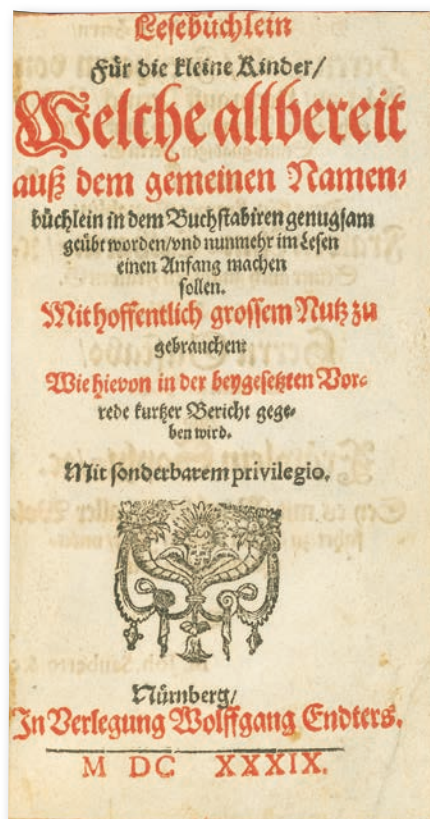 Lesebüchlein
Für die kleine Kinder/
Welche allbereit
auß dem gemeinen Namen-
büchlein in dem Buchstabiren genugsam
geübt worden/vnd nunmehr im Lesen
einen Anfang machen
sollen.
Mit hoffentlich grossem Nutz zu
gebrauchen:
Wie hievon in der beygesetzten Vor-
rede kurtzer Bericht gege-
ben wird.
Mit sonderbarem privilegio.
Nürnberg/
In Verlegung Wolffgang Endters.
M DC XXXIX.